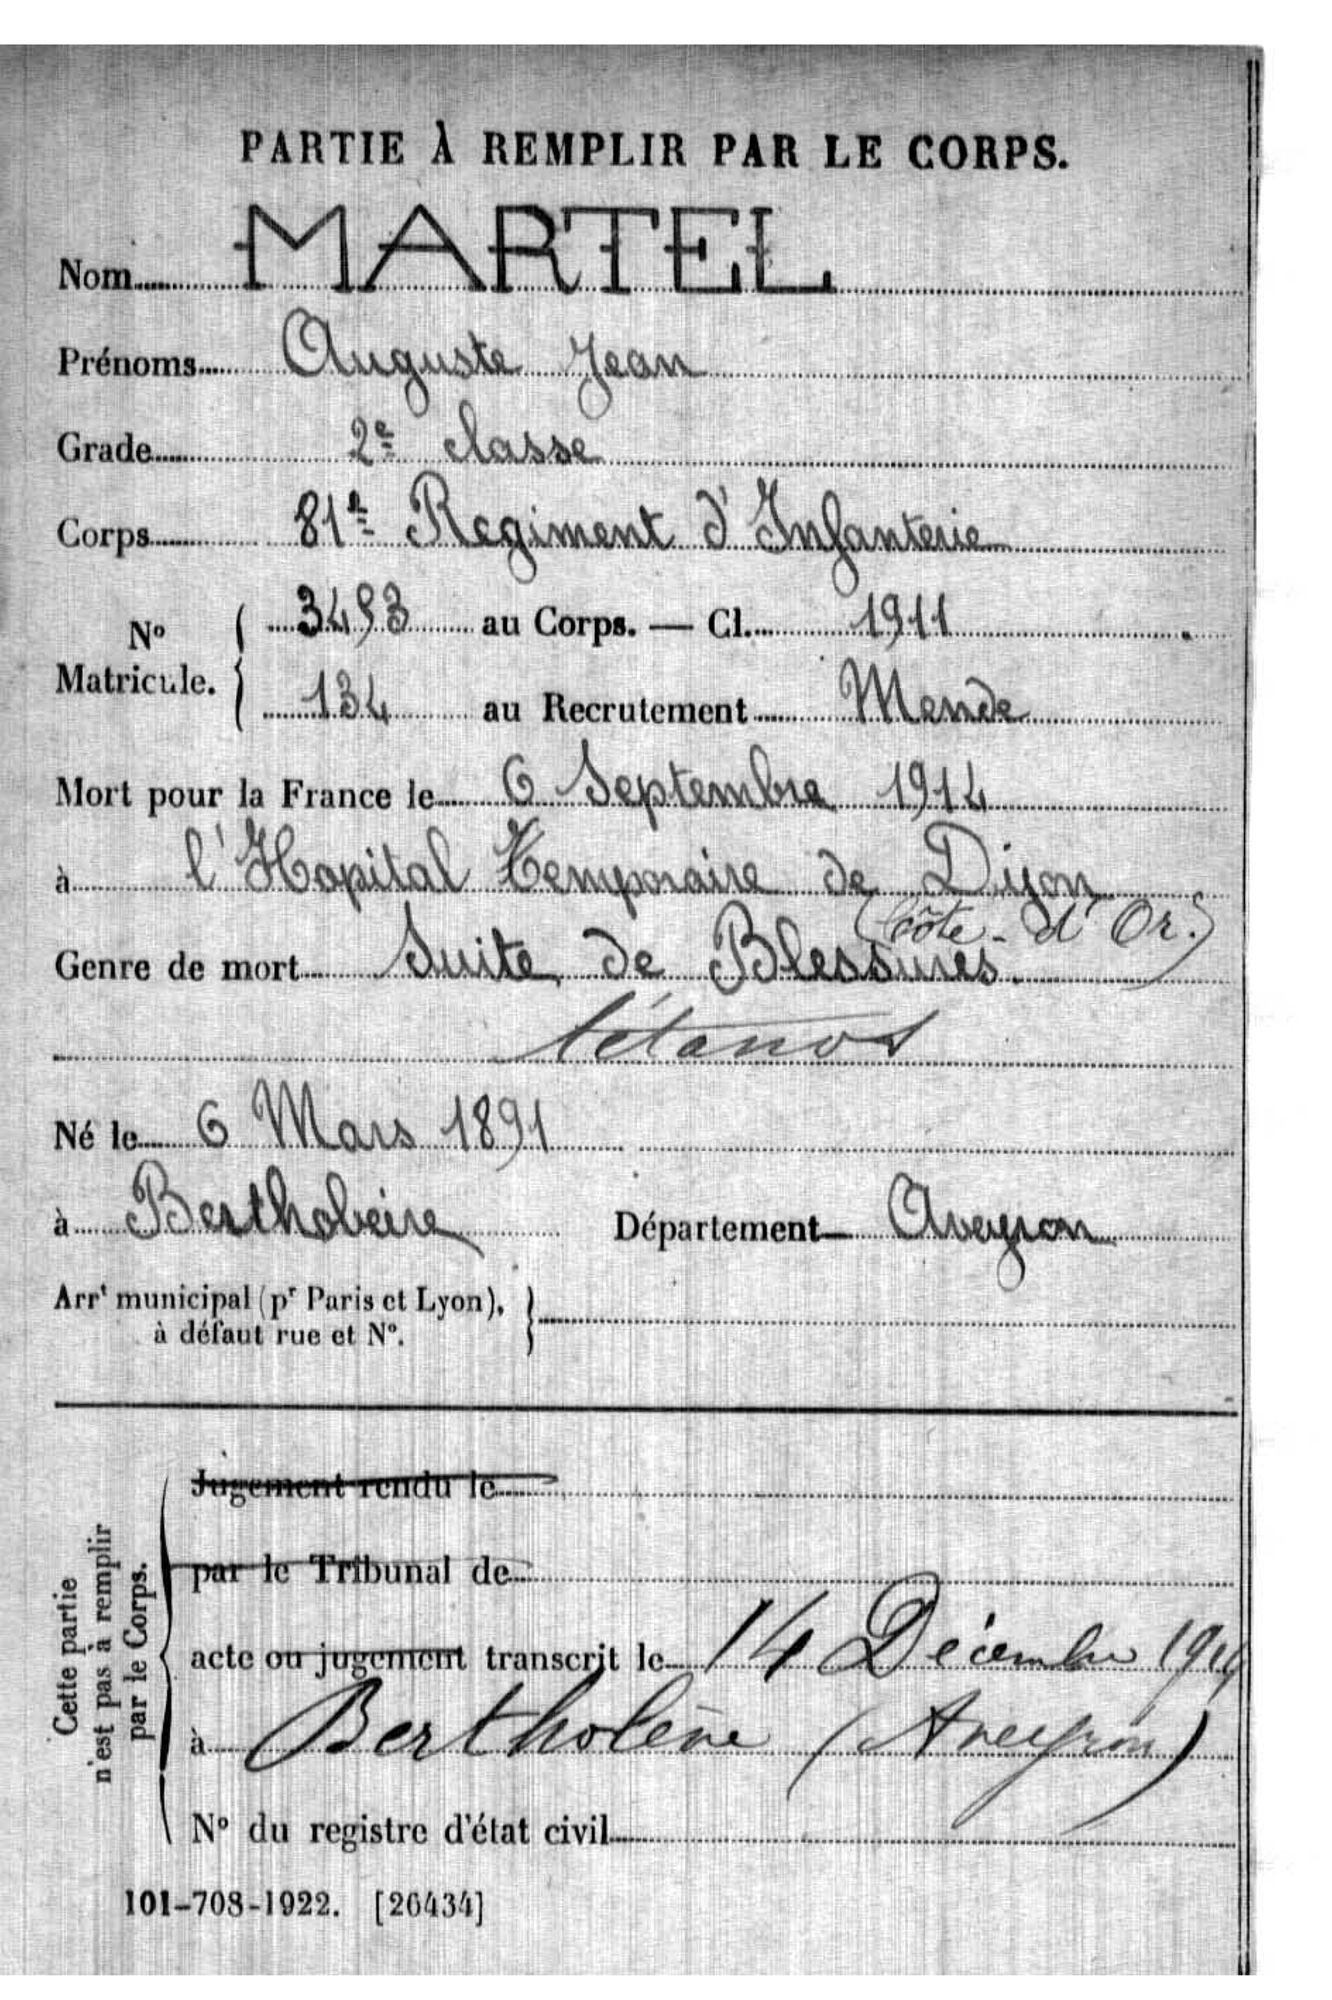 PARTIE À REMPLIR PAR LE CORPS.
Nom MARTEL
Prénoms Auguste Jean
Grade 2e classe
Corps 81e Régiment d'Infanterie
No Matricule. { 3493 au Corps. — Cl. 1911.
134 au Recrutement Mende
Mort pour la France le 6 Septembre 1914
à l'Hopital Temporaire de Dijon
(Côte-d'Or.)
Genre de mort Suite de Blessures.
tétanos
Né le 6 Mars 1891
à Département Aveyron
Arrt municipal (pr Paris et Lyon), }
à défaut rue et No.
Cette partie
n'est pas à remplir
par le Corps.
Jugement rendu le
par le Tribunal de
acte ou jugement transcrit le 14 Décembre
à Bertholène (Aveyron)
No du registre d'état civil
101-708-1922. [26434]